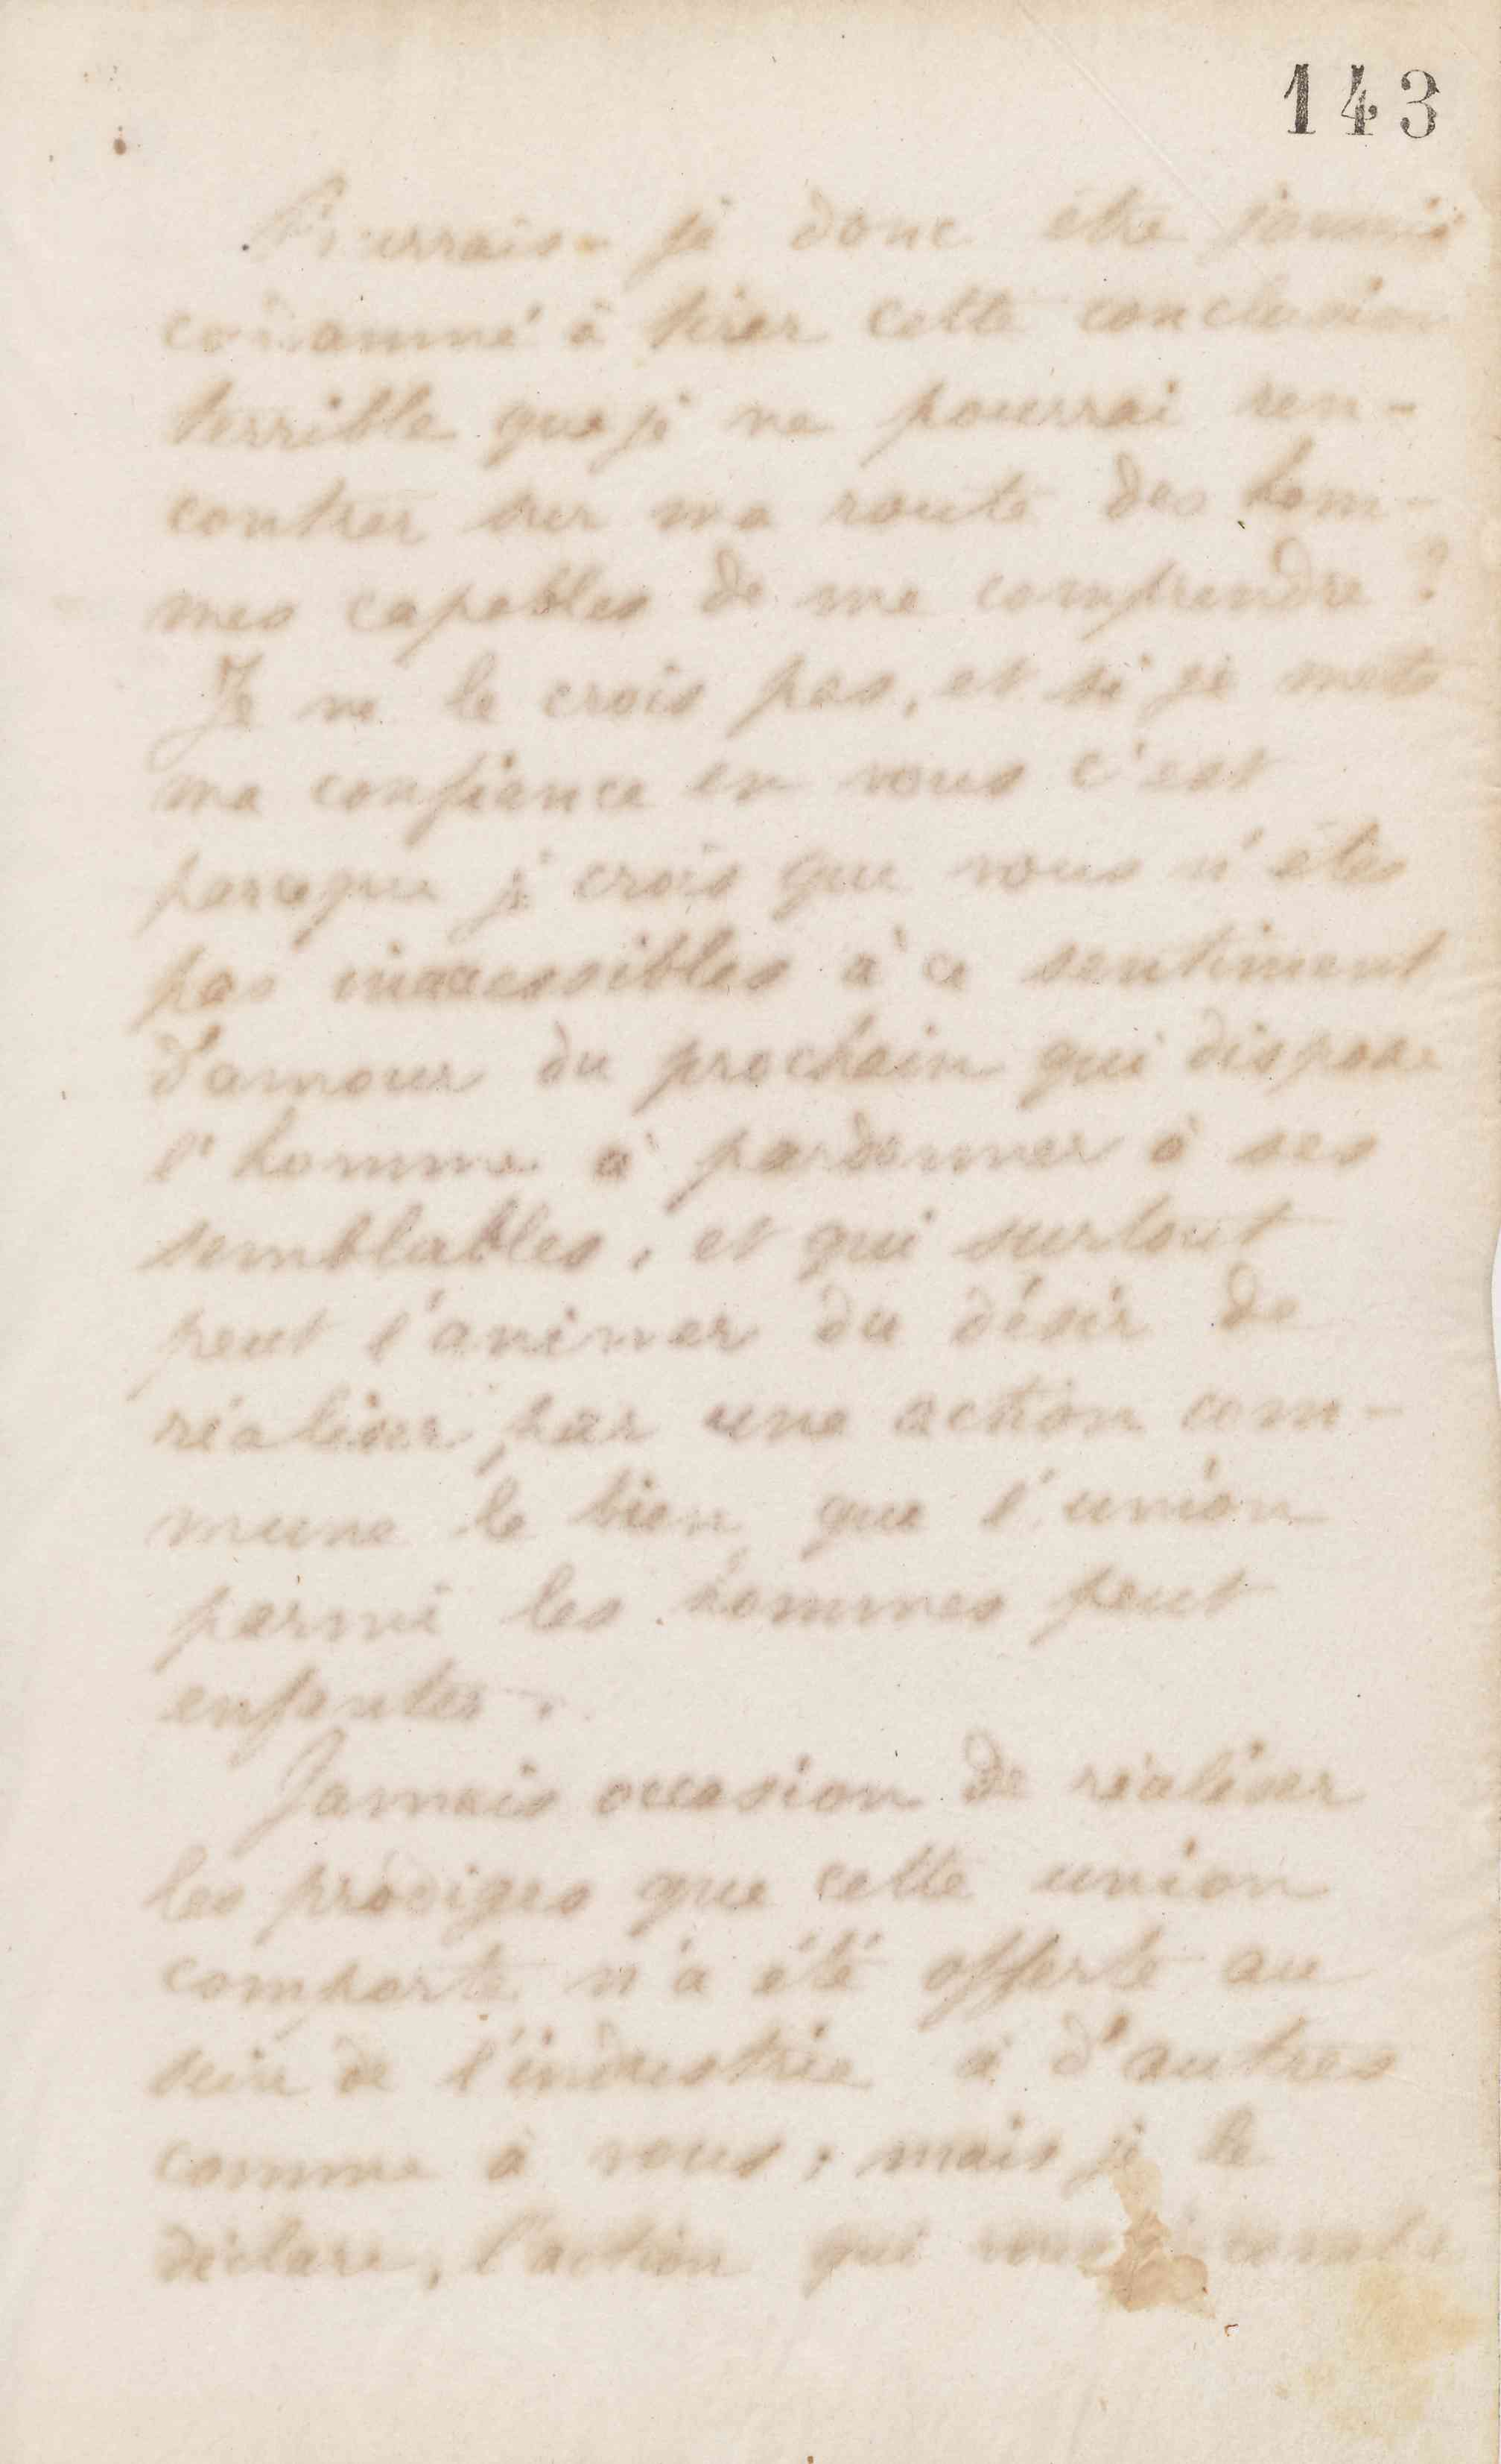 143
Pourrais-je donc être jamais
condamné à tirer cette conclusion
terrible que je ne pourrai ren-
contrer sur ma route des hom-
mes capables de me comprendre ?
Je ne le crois pas, et si je mets
ma confiance en vous c'est
parceque je crois que vous n'êtes
pas inaccessibles à ce sentiment
d'amour du prochain qui dispose
l'homme à pardonner à ses
semblables, et qui surtout
peut l'animer du désir de
réaliser par une action com-
mune le bien que l'union
parmi les hommes peut
enfanter.
Jamais occasion de réaliser
les prodiges que cette union
comporte n'a été offerte au
sein de l'industrie à d'autres
comme à vous ; mais je le
déclare, l'action qui vous